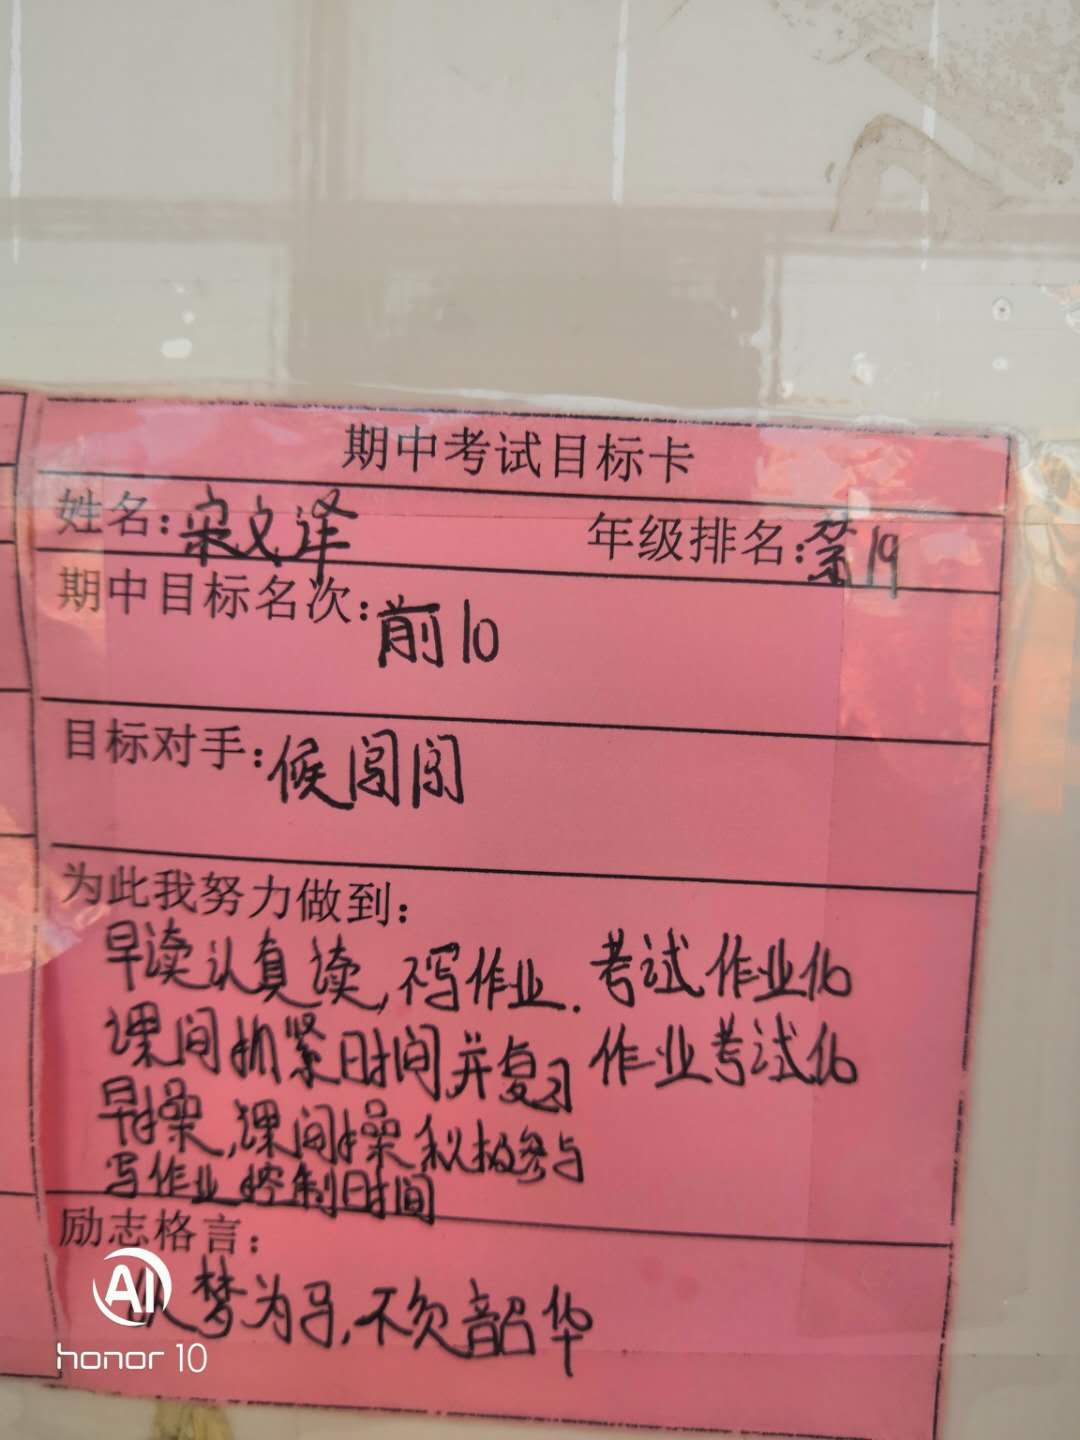 期中考试目标卡
姓名:宋文泽 年级排名:第19
期中目标名次:前10
目标对手:候闯闯
为此我努力做到:
早读认真读,不写作业. 考试作业化
课间抓紧时间,并复习 作业考试化
早操,课间操积极参与
写作业控制时间
励志格言:
以梦为马,不负韶华
AI
honor 10